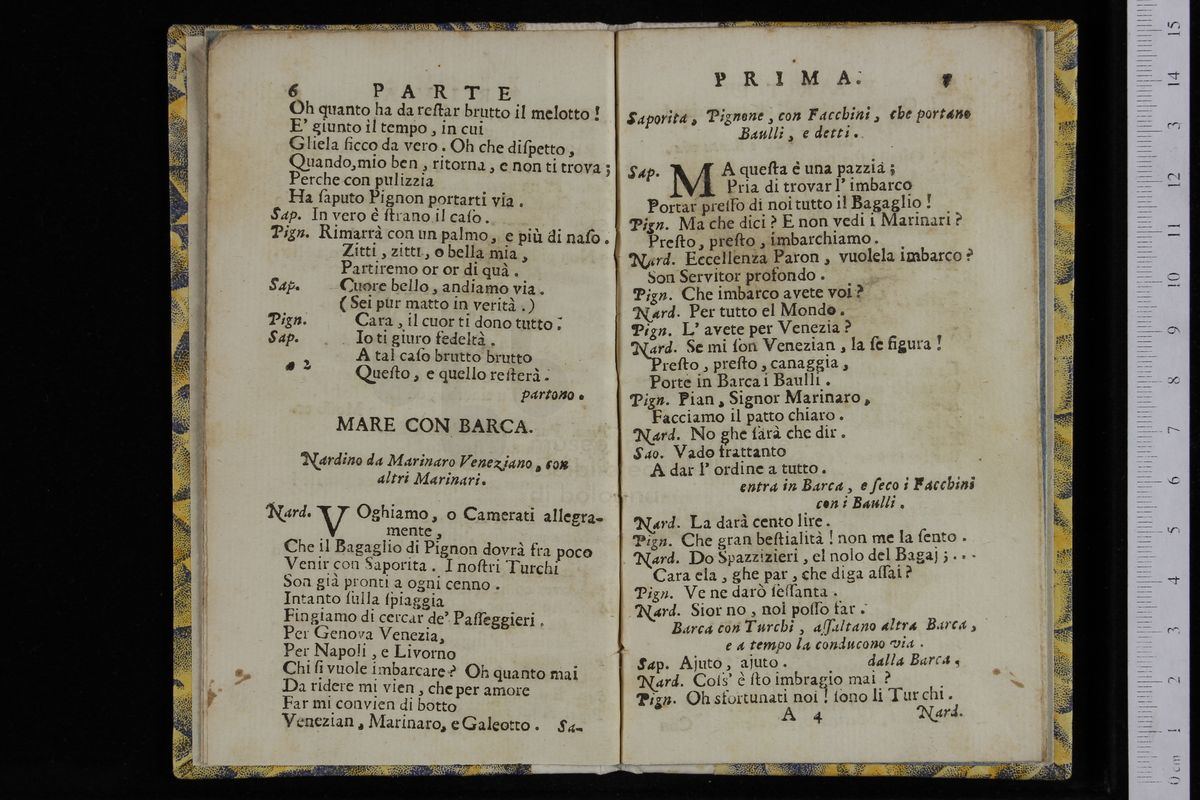 6 PARTE
Oh quanto ha da reſtar brutto il melotto !
E' giunto il tempo , in cui
Gliela ficco da vero . Oh che diſpetto ,
Quando, mio ben , ritorna , e non ti trova ;
Perche con pulizzia
Ha ſaputo Pignon portarti via .
Sap. In vero è ſtrano il caſo .
Pign. Rimarrà con un palmo , e più di naſo .
Zitti , zitti , o bella mia ,
Partiremo or or di quà .
Sap. Cuore bello , andiamo via .
( Sei pur matto in verità . )
Pign. Cara , il cuor ti dono tutto ;
Sap. Io ti giuro fedeltà .
A tal caſo brutto brutto
a 2 Queſto , e quello reſterà .
partono .
MARE CON BARCA.
Nardino da Marinaro Veneziano , con
altri Marinari .
Nard. VOghiamo , o Camerati allegra-
mente ,
Che il Bagaglio di Pignon dovrà fra poco
Venir con Saporita . I noſtri Turchi
Son già pronti a ogni cenno .
Intanto ſulla ſpiaggia
Fingiamo di cercar de' Paſſeggieri .
Per Genova Venezia,
Per Napoli , e Livorno
Chi ſi vuole imbarcare ? Oh quanto mai
Da ridere mi vien , che per amore
Far mi convien di botto
Venezian , Marinaro, e Galeotto . Sa-
PRIMA. 7
Saporita , Pignone , con Facchini , che portano
Baulli , e detti .
Sap. MA queſta è una pazzia ;
Pria di trovar l' imbarco
Portar preſſo di noi tutto il Bagaglio !
Pign. Ma che dici ? E non vedi i Marinari ?
Preſto , preſto , imbarchiamo .
Nard. Eccellenza Paron , vuolela imbarco ?
Son Servitor profondo .
Pign. Che imbarco avete voi ?
Nard. Per tutto el Mondo .
Pign. L' avete per Venezia ?
Nard. Se mi ſon Venezian , la ſe figura !
Preſto , preſto , canaggia ,
Porte in Barca i Baulli .
Pign. Pian , Signor Marinaro ,
Facciamo il patto chiaro .
Nard. No ghe ſarà che dir .
Sao. Vado frattanto
A dar l' ordine a tutto .
entra in Barca , e ſeco i Facchini
con i Baulli .
Nard. La darà cento lire .
Pign. Che gran beſtialità ! non me la ſento .
Nard. Do Spazzizieri , el nolo del Bagaj ; . . .
Cara ela , ghe par , che diga aſſai ?
Pign. Ve ne darò ſeſſanta .
Nard. Sior no , nol poſſo far .
Barca con Turchi , aſſaltano altra Barca ,
e a tempo la conducono via .
Sap. Ajuto , ajuto . dalla Barca ,
Nard. Coſs' è ſto imbragio mai ?
Pign. Oh sfortunati noi ! ſono li Turchi .
A 4 Nard.
0 cm 1 2 3 4 5 6 7 8 9 10 11 12 13 14 15